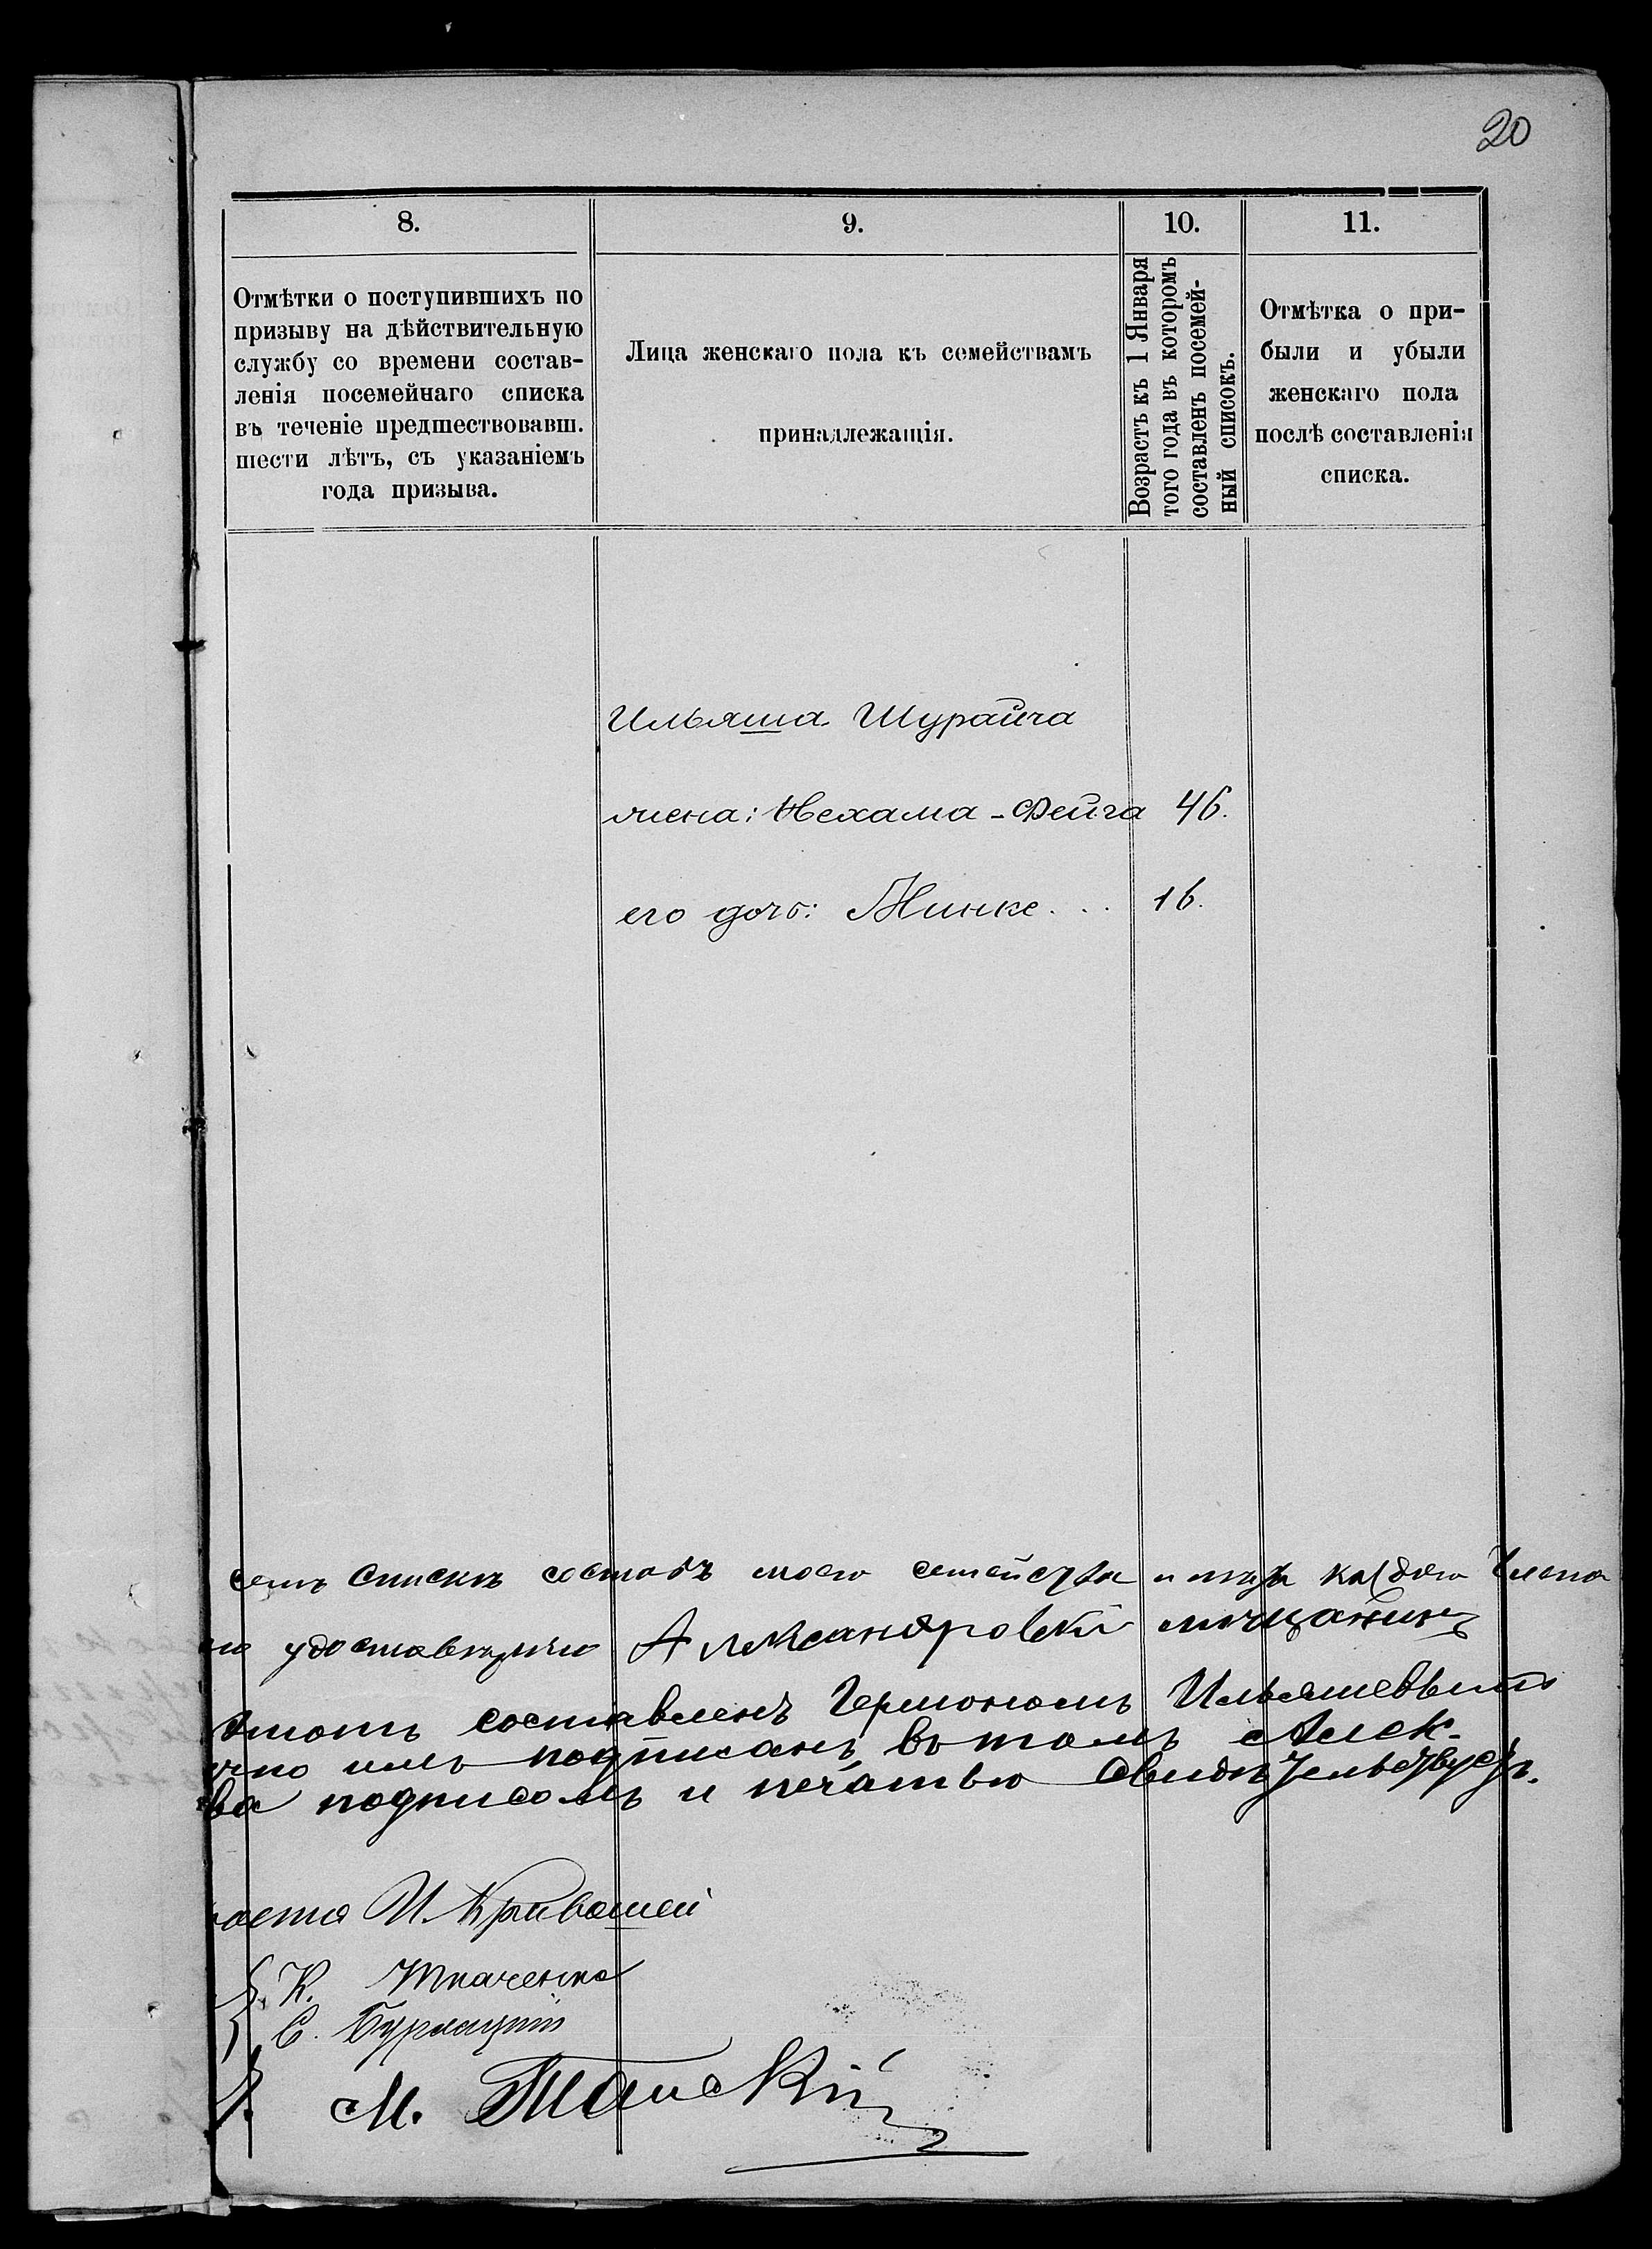 20
8.
9.
10.
11.
Отмѣтки о поступившихъ по
призыву на дѣйствительную
службу со времени состав-
ленія посемейнаго списка
въ теченіе предшествовавш.
шести лѣтъ, съ указаніемъ
года призыва.
Лица женскаго пола къ семействамъ
принадлежащія.
Возрастъ къ 1 Января
того года въ которомъ
составленъ посемей-
ный списокъ.
Отмѣтка о при-
были и убыли
женскаго пола
послѣ составленія
списка.
Ильяша Шурайча
жена: Нехама-Фейга 46.
его дочь: Минке . . . 16.
семъ спискѣ составъ моего семейства и лѣта каждаго члена
удостовѣряю Александровскій мѣщанинъ
этотъ составленъ Ильяшевымъ
имъ подписанъ, въ томъ Алек-
ва подписомъ и печатью свидѣтельствуетъ.
роста И. Кривошей
К. Ткаченко
С. Бурлацкій
М.